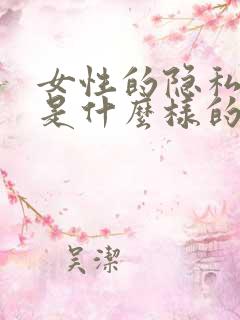 女性的隐私
是什麽樣的
吴潔